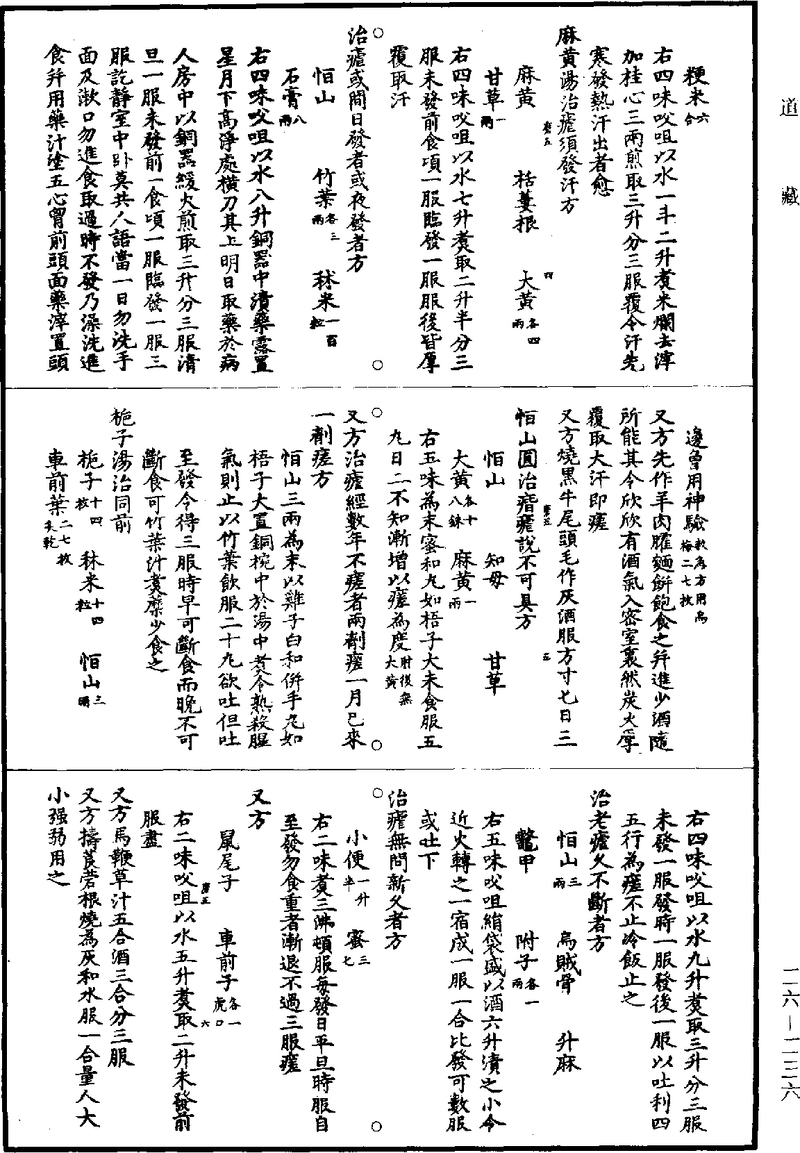 道藏
粳米六合
右四味㕮咀以水一斗二升煮米爛去滓
加桂心三兩煎取三升分三服覆令汗先
寒發熱汗出者愈
麻黃湯治瘧須發汗方
麻黃 栝蔞根 大黃各四兩
甘草一兩
右四味㕮咀以水七升煮取二升半分三
服未發前食頃一服臨發一服服後皆厚
覆取汗
治瘧或間日發者或夜發者方
恒山 竹葉各三兩 秫米一百粒
石膏八兩
右四味㕮咀以水八升銅器中漬藥露置
星月下高淨處橫刀其上明日取藥於病
人房中以銅器緩火煎取三升分三服清
旦一服未發前一食頃一服臨發一服三
服訖靜室中卧莫共人語當一日勿洗手
面及漱口勿進食取過時不發乃澡洗進
食并用藥汁塗五心胷前頭面藥滓置頭
邊曾用神驗救急方用烏梅二七枚
又方先作羊肉臛麵餅飽食之并進少酒隨
所能其令欣欣有酒氣入密室裏然炭火厚
覆取大汗即瘥
又方燒黑牛尾頭毛作灰酒服方寸匕日三
恒山圓治瘖瘧說不可具方
恒山 知母 甘草
大黃各十八銖 麻黃一兩
右五味為末蜜和丸如梧子大未食服五
丸日二不知漸增以瘥為度肘後無大黃
又方治瘧經數年不瘥者兩劑瘥一月已來
一劑瘥方
恒山三兩為末以雞子白和併手丸如
梧子大置銅椀中於湯中煮令熟殺腥
氣則止以竹葉飲服二十丸欲吐但吐
至發令得三服時早可斷食而晚不可
斷食可竹葉汁煮糜少食之
梔子湯治同前
梔子十四枚 秫米十四粒 恒山三兩
車前葉二七枚炙乾
右四味㕮咀以水九升煮取三升分三服
未發一服發時一服發後一服以吐利四
五行為瘥不止冷飯止之
治老瘧久不斷者方
恒山三兩 烏賊骨 升麻
鱉甲 附子各一兩
右五味㕮咀絹袋盛以酒六升漬之小令
近火轉之一宿成一服一合比發可數服
或吐下
治瘧無問新久者方
小便一升半 蜜三匕
右二味煮三沸頓服每發日平旦時服自
至發勿食重者漸退不過三服瘥
又方
鼠尾子 車前子各一虎口
右二味㕮咀以水五升煮取二升未發前
服盡
又方馬鞭草汁五合酒三合分三服
又方擣莨菪根燒為灰和水服一合量人大
小強弱用之
二六—二三六